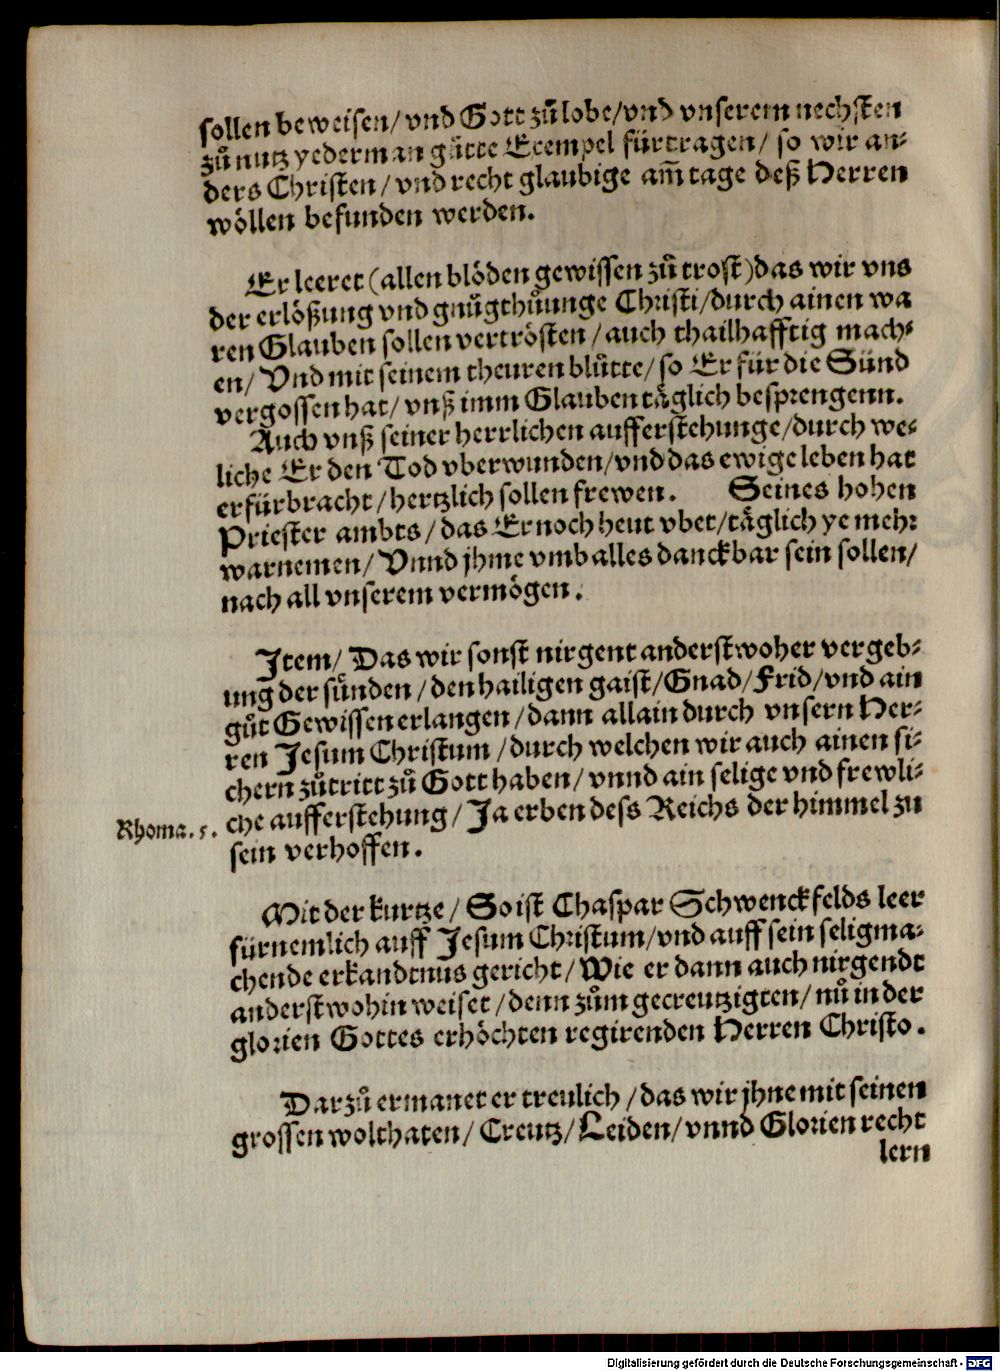 sollen beweisen/vnd Gott zů lobe/vnd vnserem nechsten
zů nutz yederman gůtte Exempel fürtragen/ so wir an⸗
ders Christen/vnd recht glaubige am̃ tage deß Herren
wöllen befunden werden.
Er leeret (allen blöden gewissen zů trost) das wir vns
der erlößung vnd gnůgthůunge Christi/durch ainen wa
ren Glauben sollen vertrösten/auch thailhafftig mach⸗
en/ Vnd mit seinem theuren blůtte/ so Er für die Sünd
vergossen hat/ vnß imm Glauben täglich besprengenn.
Auch vnß seiner herrlichen aufferstehunge/durch we⸗
liche Er den Tod vberwunden/vnd das ewige leben hat
erfürbracht/hertzlich sollen frewen. Seines hohen
Priester ambts/das Er noch heut vbet/täglich ye mehr
warnemen/ Vnnd jhme vmb alles danckbar sein sollen/
nach all vnserem vermögen.
Item/ Das wir sonst nirgent anderstwoher vergeb⸗
ung der sünden/den hailigen gaist/Gnad/Frid/vnd ain
gůt Gewissen erlangen/dann allain durch vnsern Her⸗
ren Jesum Christum/durch welchen wir auch ainen si⸗
chern zůtritt zů Gott haben/vnnd ain selige vnd frewli⸗
Rhoma. 5. che aufferstehung/ Ja erben dess Reichs der himmel zu
sein verhoffen.
Mit der kurtze/ So ist Chaspar Schwenckfelds leer
fürnemlich auff Jesum Christum/vnd auff sein seligma⸗
chende erkandtnus gericht/ Wie er dann auch nirgendt
anderstwohin weiset/denn zům gecreutzigten/nů in der
glorien Gottes erhöchten regirenden Herren Christo.
Darzů ermanet er treulich/das wir jhne mit seinen
grossen wolthaten/ Creutz/ Leiden/vnnd Glorien recht
lern
Digitalisierung gefördert durch die Deutsche Forschungsgemeinschaft - DFG